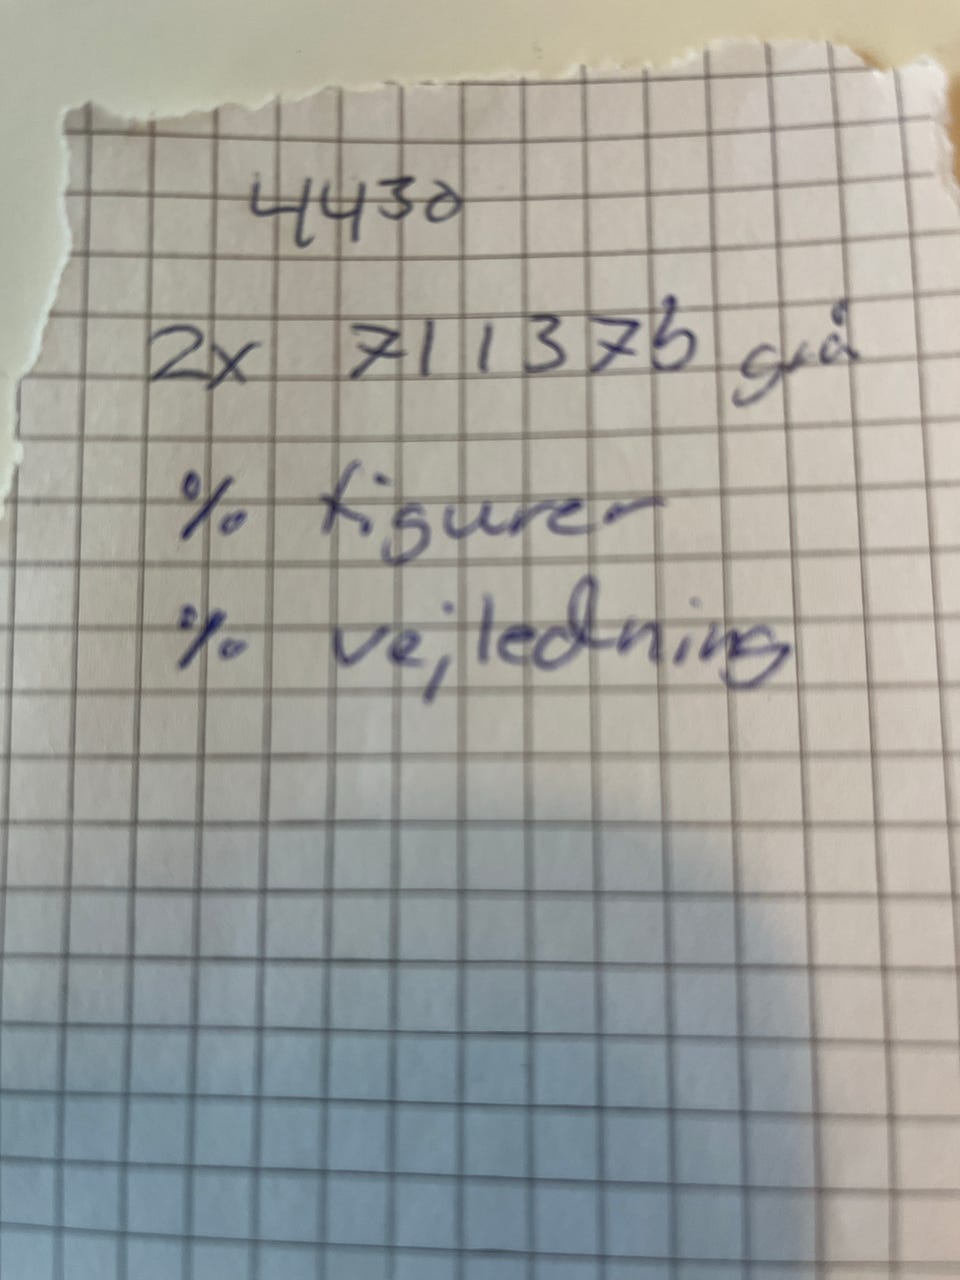 4430
2x 711376 grå
% figurer
% vejledning